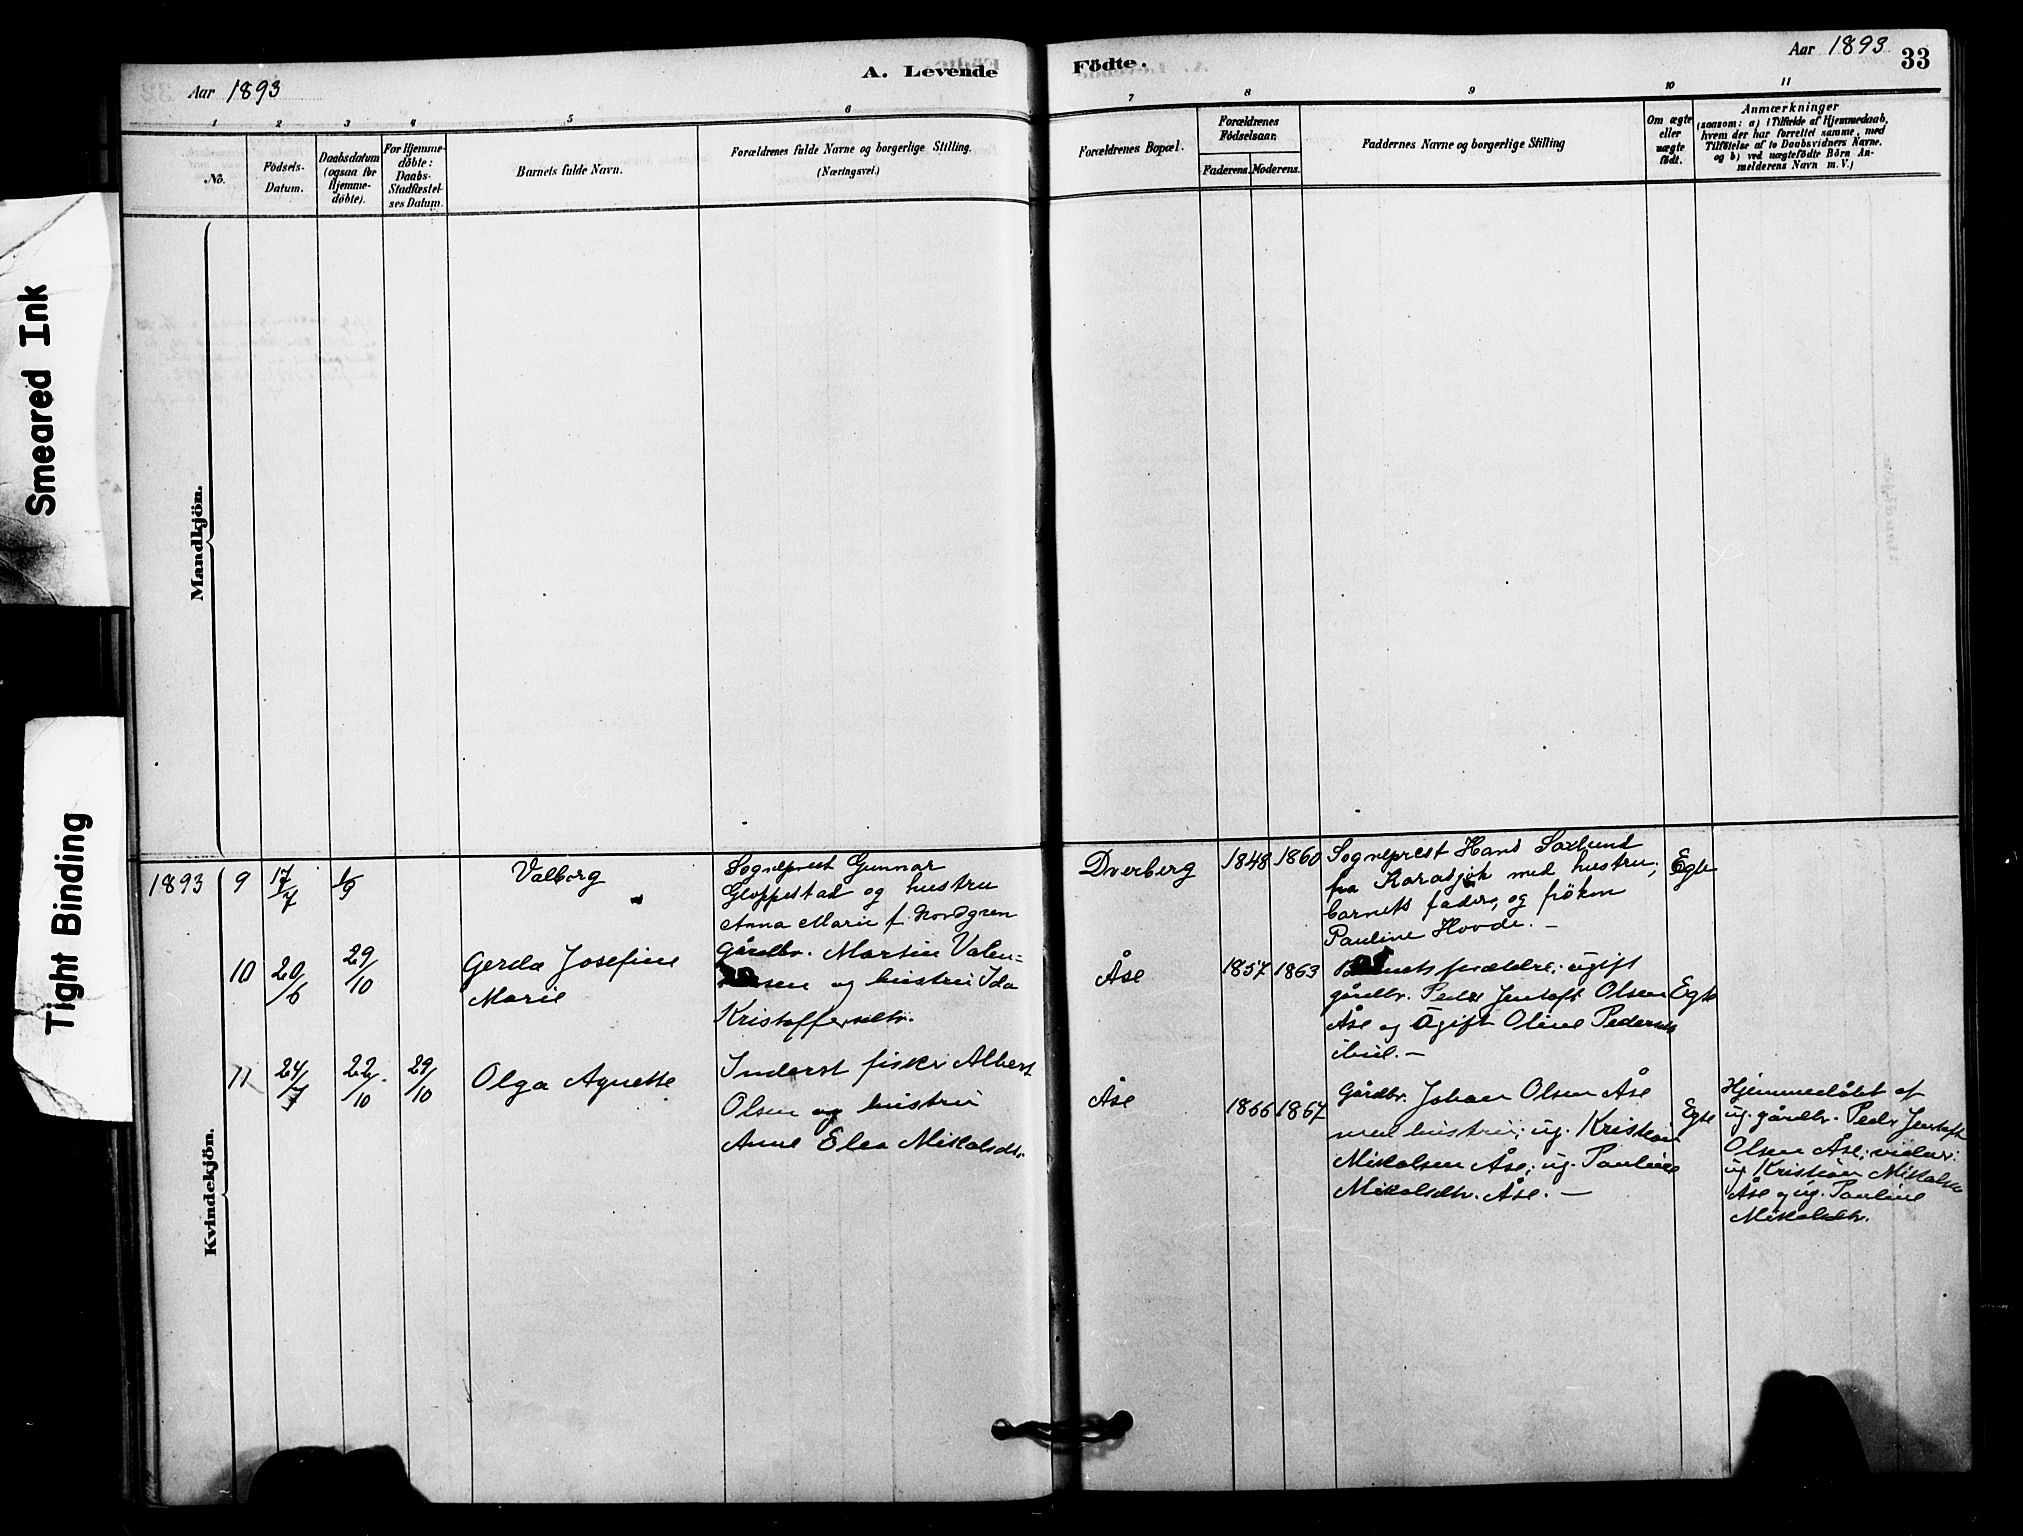 Smeared Ink
Tight Binding
Aar 1893
A. Levende
1 2 3 4 5 6
No.
Födsels-
Datum.
Daabsdatum
(ogsaa for
Hjemme-
døbte).
For Hjemme-
döbte:
Daabs-
Stadfæstel-
ses Datum.
Barnets fulde Navn.
Forældrenes fulde Navne og borgerlige Stilling.
(Næringsvei.)
Mandkjön.
Kvindekjön.
1893 9 17/7 1/9 Valborg
Sogneprest Gunnar
Gloppestad og hustru
Anna Marie f. Nordgren
10 20/6 29/10 Gerda Josefine
Marie
Gårdbr. Martin Valen-
sen og hustru Ida
Kristoffersdtr.
11 24/7 22/10 29/10 Olga Agnette
Inderst fisker Albert
Olsen og hustru
Anne Elea Mikalsdtr.
Födte.
Aar 1893
33
7 8 9 10 11
Forældrenes Bopæl.
Forældrenes
Födselsaar.
Faderens. Moderens.
Faddernes Navne og borgerlige Stilling
Om ægte
eller
uægte
födt.
Anmærkninger
(saasom: a) i Tilfælde af Hjemmedaab,
hvem der har forrettet samme, med
Tilföielse af to Daabsvidners Navne.
og b) ved uægtefödte Börn An-
melderens Navn m. V.)
Dverberg 1848 1860
Sogneprest Hans Saxlund
fra Karasjok med hustru,
barnets fader, og frøken
Pauline Hovde. —
Egte
Åse 1857 1863
Barnets forældre; ugift
gårdbr. Peder Jentoft Olsen
Åse og ugift Oline Pedersen
ibid. —
Egte
Åse 1866 1867
Gårdbr. Johan Olsen Åse
med hustru; ug. Kristian
Mikalsen Åse; ug. Pauline
Mikalsdtr. Åse. —
Egte
Hjemmedøbt af
ug. gårdbr. Peder Jentoft
Olsen Åse; vidner:
ug. Kristian Mikalsen
Åse og ug. Pauline
Mikalsdtr.